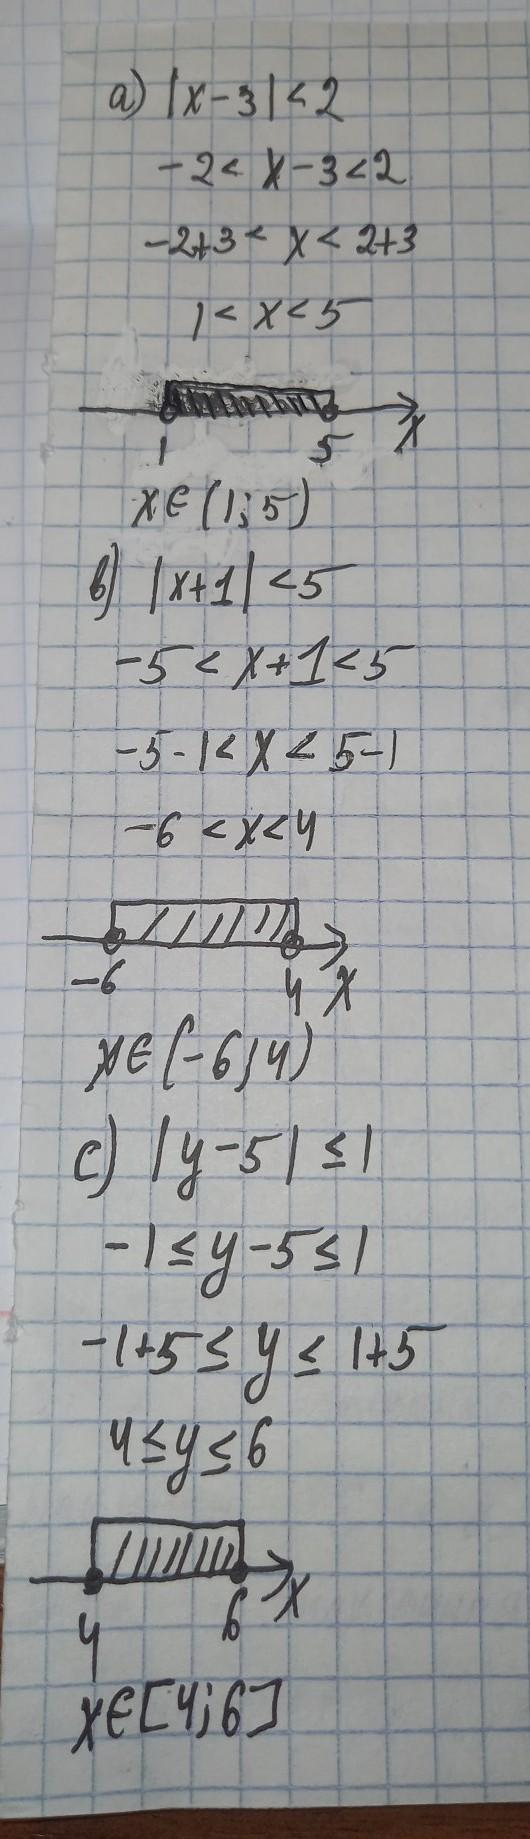 a) |x-3|<2
-2< x-3<2
-2+3< x< 2+3
1< x<5
1 5 x
x∈(1;5)
b) |x+1|<5
-5<x+1<5
-5-1<x<5-1
-6<x<4
-6 4 x
x∈(-6;4)
c) |y-5|≤1
-1≤y-5≤1
-1+5≤y≤1+5
4≤y≤6
4 6 x
x∈[4;6]